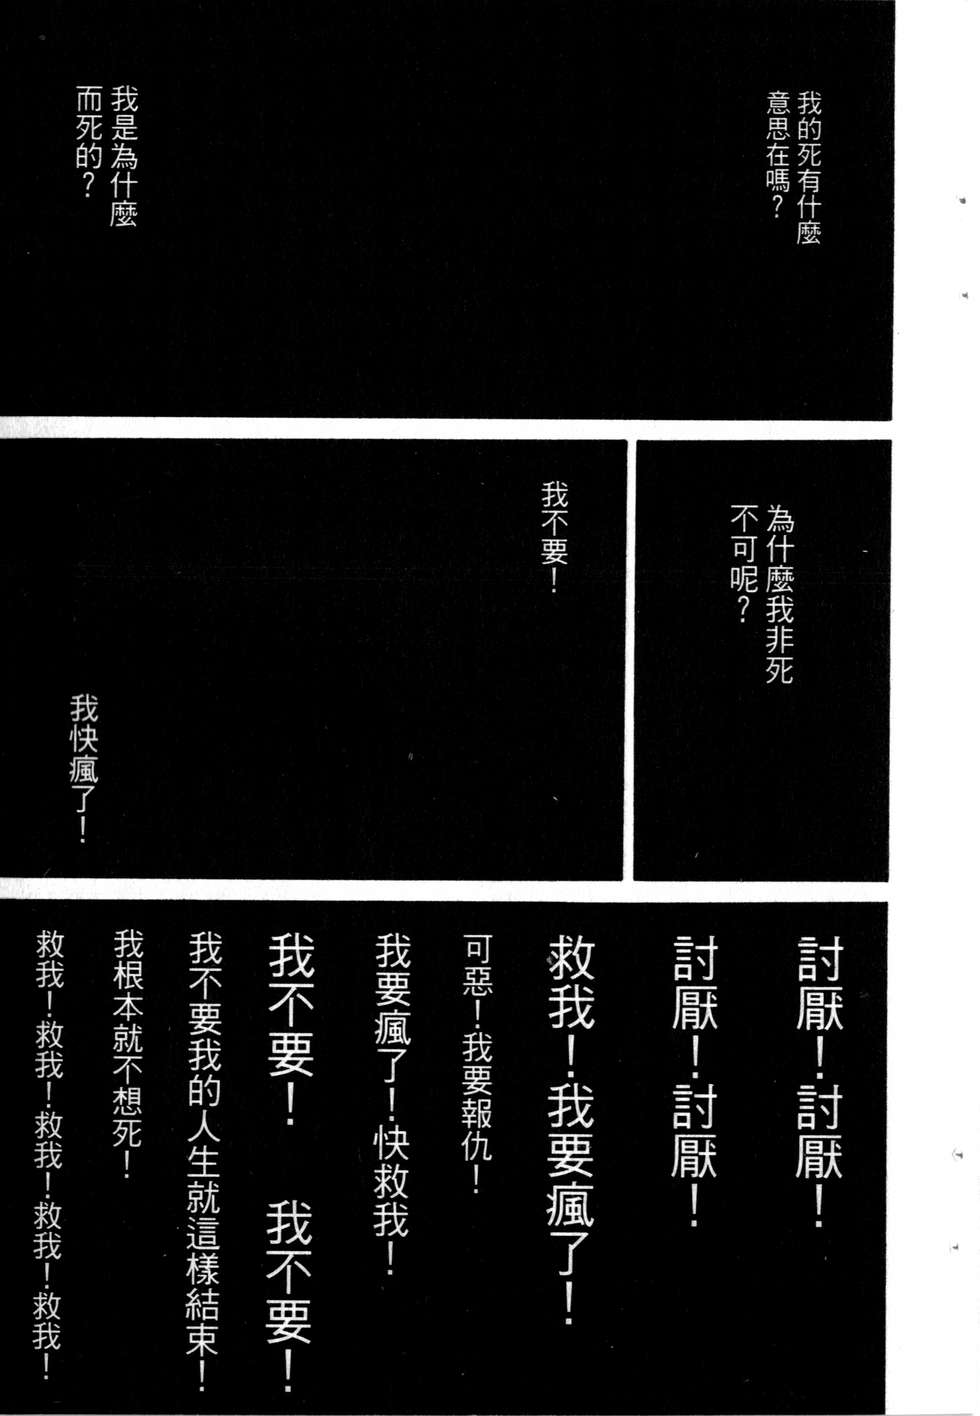 我的死有什麼
意思在嗎？
我是為什麼
而死的？
為什麼我非死
不可呢？
我不要！
我快瘋了！
討厭！討厭！
討厭！討厭！
救我！我要瘋了！
可惡！我要報仇！
我要瘋了！快救我！
我不要！　我不要！
我不要我的人生就這樣結束！
我根本就不想死！
救我！救我！救我！救我！救我！